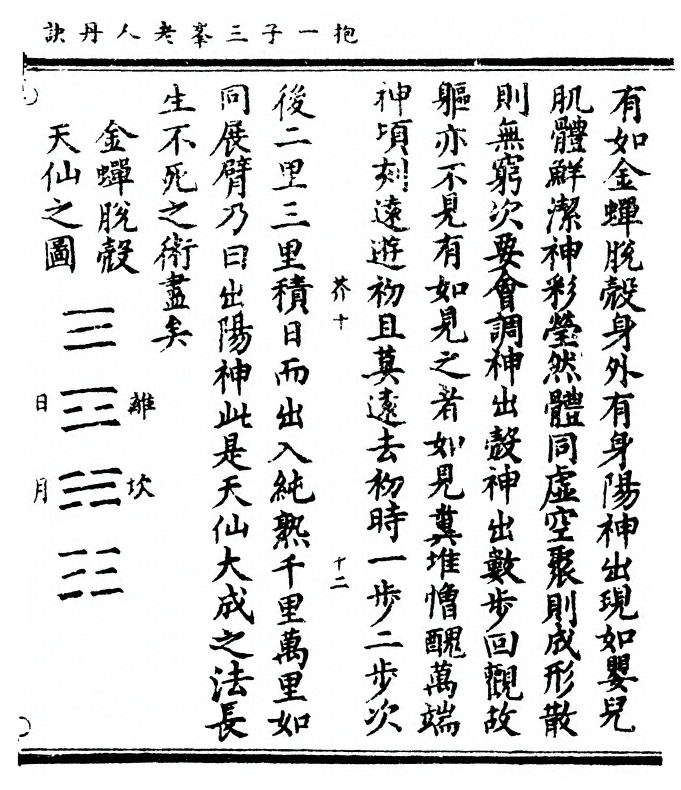 抱一子三峯老人丹訣
有如金蟬脫殼身外有身陽神出現如嬰兒
肌體鮮潔神彩瑩然體同虛空聚則成形散
則無窮次要會調神出殼神出數步回觀故
軀亦不見有如見之者如見糞堆憎醜萬端
神頃刻遠遊初且莫遠去初時一步二步次
芥十
十二
後二里三里積日而出入純熟千里萬里如
同展臂乃曰出陽神此是天仙大成之法長
生不死之術盡矣
金蟬脫殼
天仙之圖
離
坎
日
月